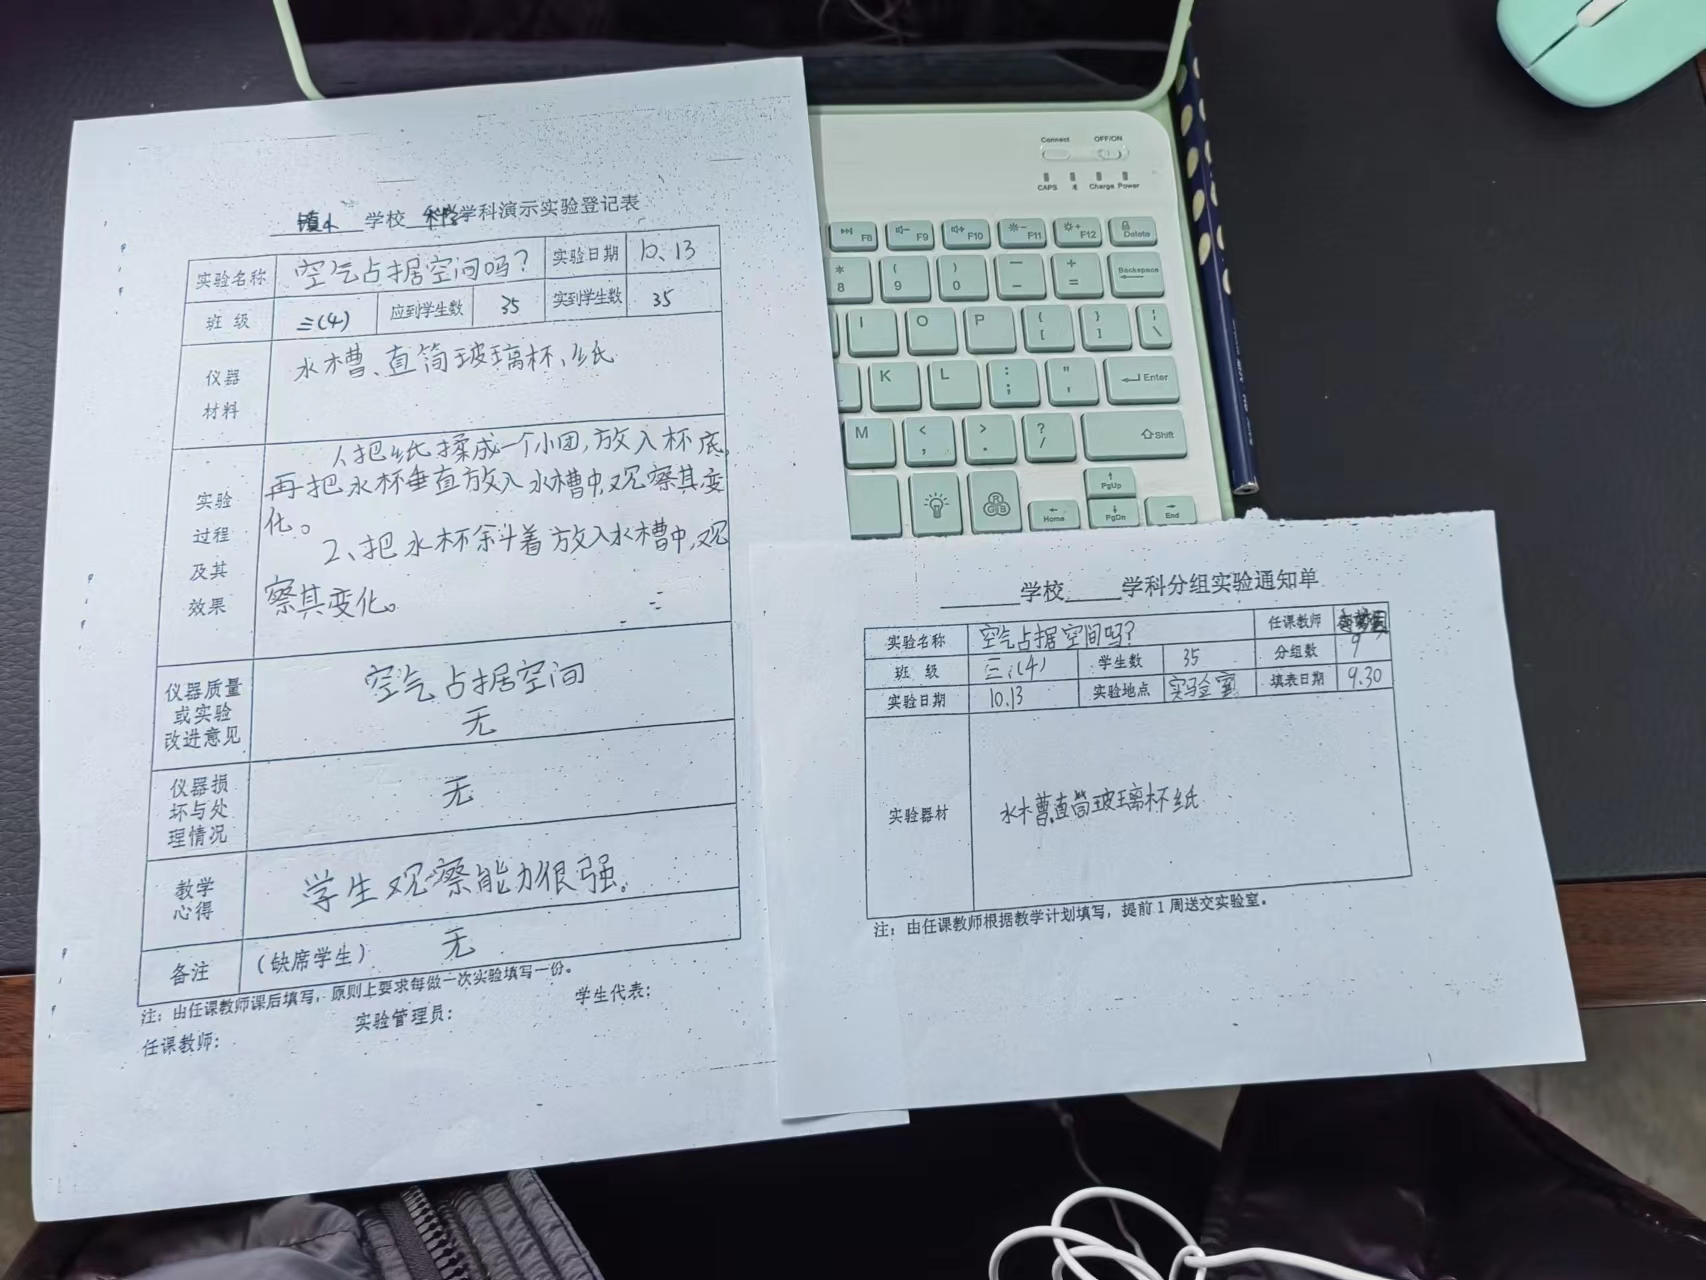 镇小 学校 科学 学科演示实验登记表
实验名称 空气占据空间吗? 实验日期 10.13
班 级 三(4) 应到学生数 35 实到学生数 35
仪器
材料
水槽、直筒玻璃杯、纸
实验
过程
及其
效果
1、把纸揉成一个小团,放入杯底,
再把水杯垂直放入水槽中,观察其变
化。
2、把水杯斜着放入水槽中,观
察其变化。
仪器质量
或实验
改进意见
空气占据空间
无
仪器损
坏与处
理情况
无
教学
心得
学生观察能力很强。
备注 (缺席学生) 无
注:由任课教师课后填写,原则上要求每做一次实验填写一份。
任课教师: 实验管理员: 学生代表:
学校 学科分组实验通知单
实验名称 空气占据空间吗? 任课教师
班 级 三(4) 学生数 35 分组数 9
实验日期 10.13 实验地点 实验室 填表日期 9.30
实验器材 水槽直筒玻璃杯纸
注:由任课教师根据教学计划填写,提前1周送交实验室。
Connect OFF/ON
CAPS Charge Power
F8 F9 F10 F11 F12 Delete
* ( ) — +
8 9 0 - = Backspace
I O P { [ } ] | \
K L : ; " ' Enter
M < , > . ? / Shift
PgUp
Home PgDn End
R G B